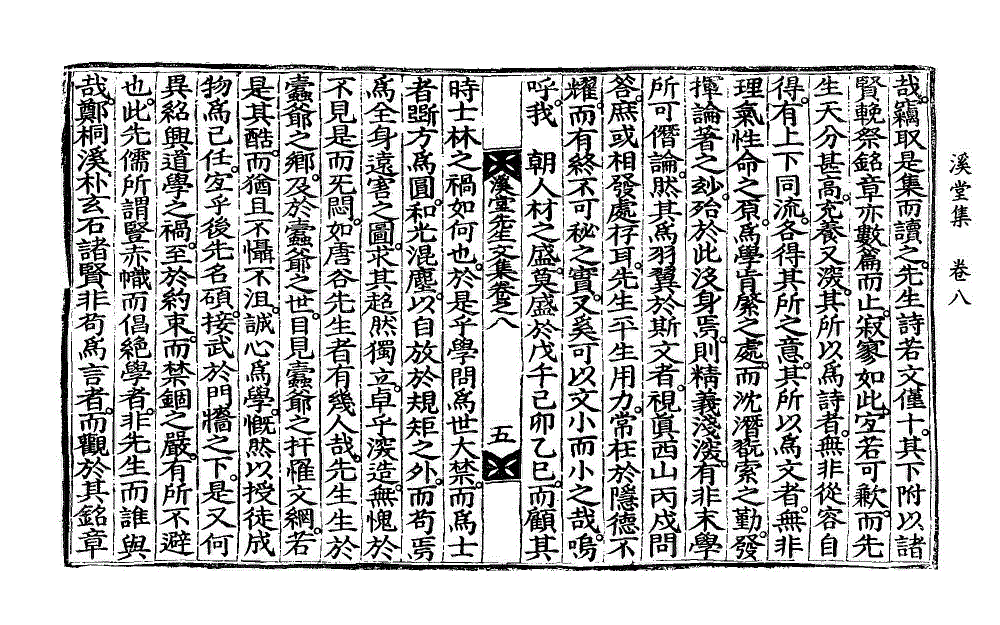 溪堂集　卷八
哉。竊取是集而讀之。先生詩若文僅十。其下附以諸
賢輓祭銘章亦數篇而止。寂寥如此。宜若可歉。而先
生天分甚高。充養又深。其所以爲詩者。無非從容自
得。有上下同流。各得其所之意。其所以爲文者。無非
理氣性命之原。爲學肯綮之處。而沈潛翫索之勤。發
揮論著之妙。殆於此沒身焉。則精義淺深。有非末學
所可僭論。然其爲羽翼於斯文者。視眞西山丙戌問
答。庶或相發處存耳。先生平生用力。常在於隱德不
耀。而有終不可秘之實。又奚可以文小而小之哉。嗚
呼。我　朝人材之盛。莫盛於戊午己卯乙巳。而顧其
溪堂先生文集卷之八　五
時士林之禍如何也。於是乎學問爲世大禁。而爲士
者斲方爲圓。和光混塵。以自放於規矩之外。而苟焉
爲全身遠害之圖。求其超然獨立。卓乎深造。無愧於
不見是而无悶。如唐谷先生者有幾人哉。先生生於
蠹爺之鄕。及於蠹爺之世。目見蠹爺之扞罹文網。若
是其酷。而猶且不懾不沮。誠心爲學。慨然以授徒成
物爲己任。宜乎後先名碩。接武於門牆之下。是又何
異紹興道學之禍。至於約束。而禁錮之嚴。有所不避
也。此先儒所謂豎赤幟而倡絶學者。非先生而誰與
哉。鄭桐溪朴玄石諸賢非苟爲言者。而觀於其銘章